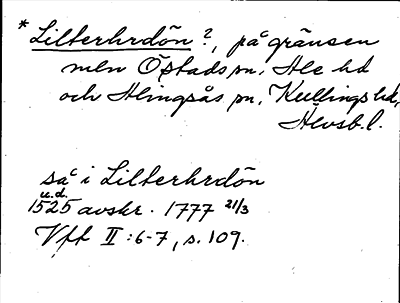 * Lilterhrdön?, på gränsen
mln Östads sn, Ale hd
och Alingsås sn, Kullings hd,
Älvsb. l.
så i Lilterhrdön
u.d.
1525 avskr. 1777 21/3
Vff II:6-7, s. 109.